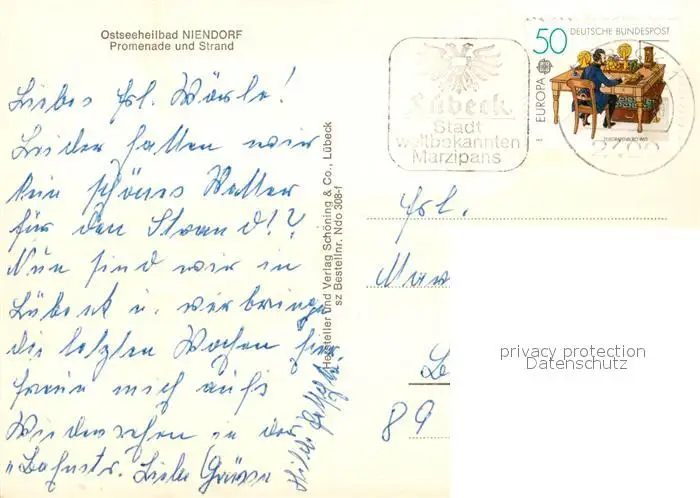 Ostseeheilbad NIENDORF
Promenade und Strand
Liebes Frl. Wörle!
Leider hatten wir
kein schönes Wetter
für den Strand!?
Nun sind wir in
Lübeck u. verbringen
die letzten Wochen hier
freue mich aufs
Wiedersehen in der
"Bahnstr. Liebe Grüsse
Hersteller und Verlag Schöning & Co., Lübeck
sz Bestellnr. Ndo 308-f
Lübeck
Stadt
weltbekannten
Marzipans
50 DEUTSCHE BUNDESPOST
EUROPA
Frl.
89
privacy protection
Datenschutz